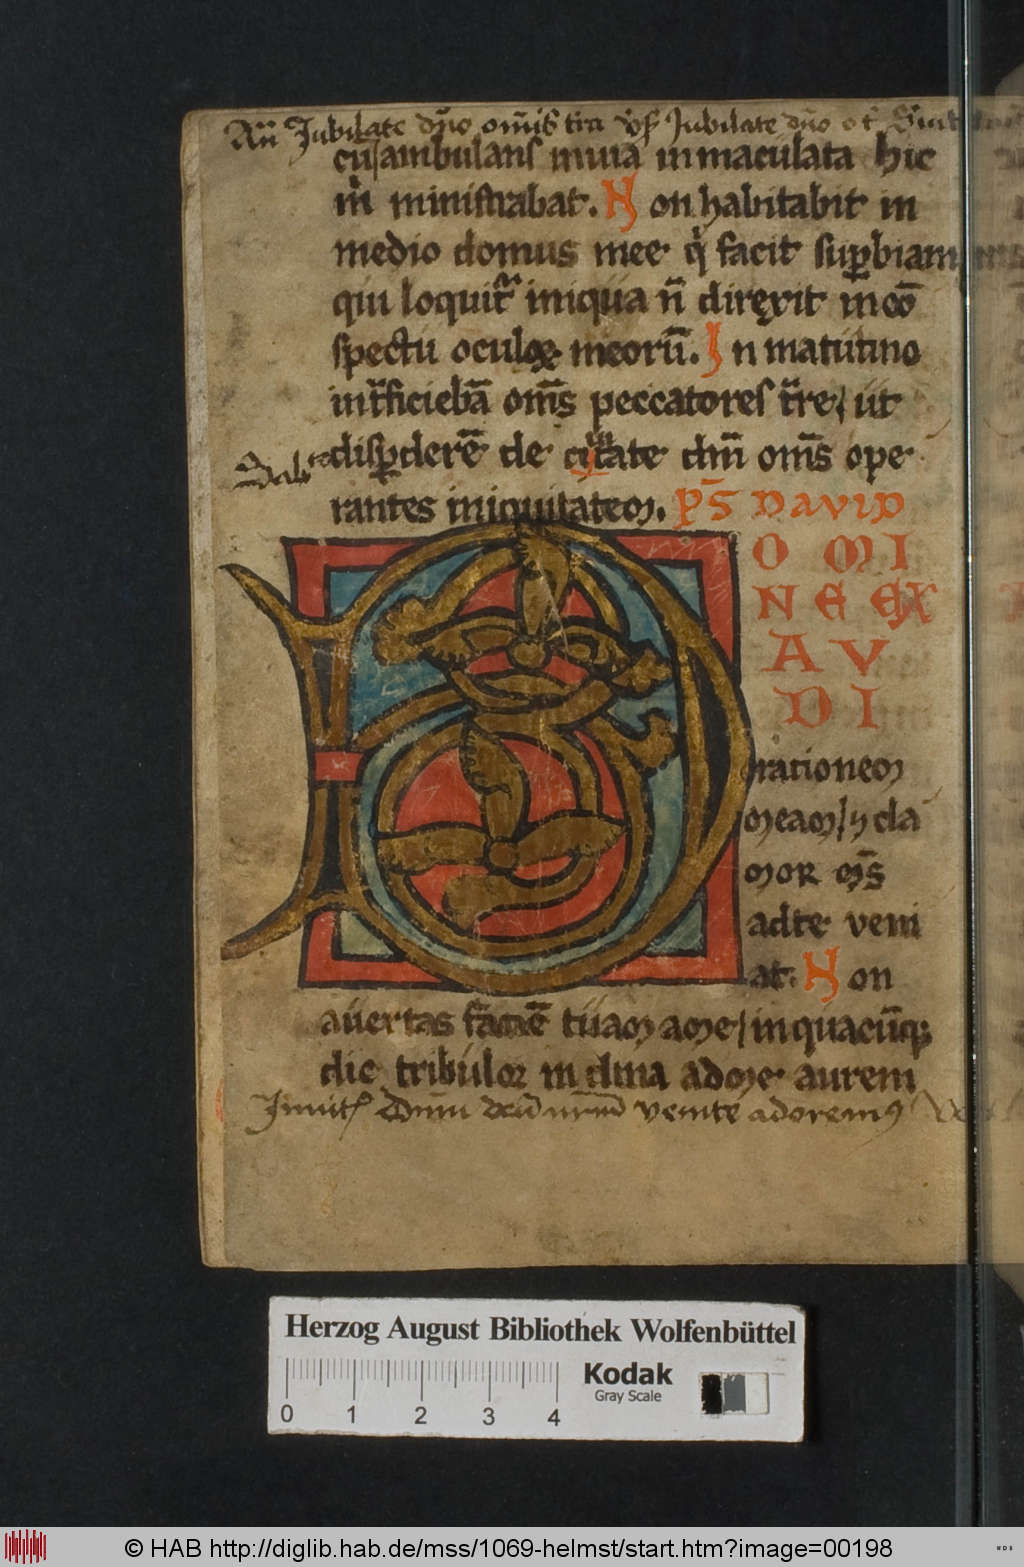 Añ Jubilate dño om̃is tra Jubilate dño
cũ ambulans in uia inmaculata hic
m̃ ministrabat. Non habitabit in
medio domus mee q̇ facit supbiam
qui loquit̃ iniqua ñ direxit incõ
spectu oculoꝝ meorũ. In matutino
int̃ficiebã om̃s peccatores t̃re, ut
dispderẽ de ciuitate dñi om̃s ope
rantes iniquitatem. P̄S DAVID
D OMI
NE EX
AV
DI
orationem
meam, ⁊ cla
mor m̃s
adte veni
at. Non
auertas faciẽ tuam ame, in quacũq;
die tribulor inclina adme aurem
Inuit Dñm deũ nr̃m venite adoremꝰ
Herzog August Bibliothek Wolfenbüttel
Kodak
Gray Scale
0 1 2 3 4
© HAB http://diglib.hab.de/mss/1069-helmst/start.htm?image=00198